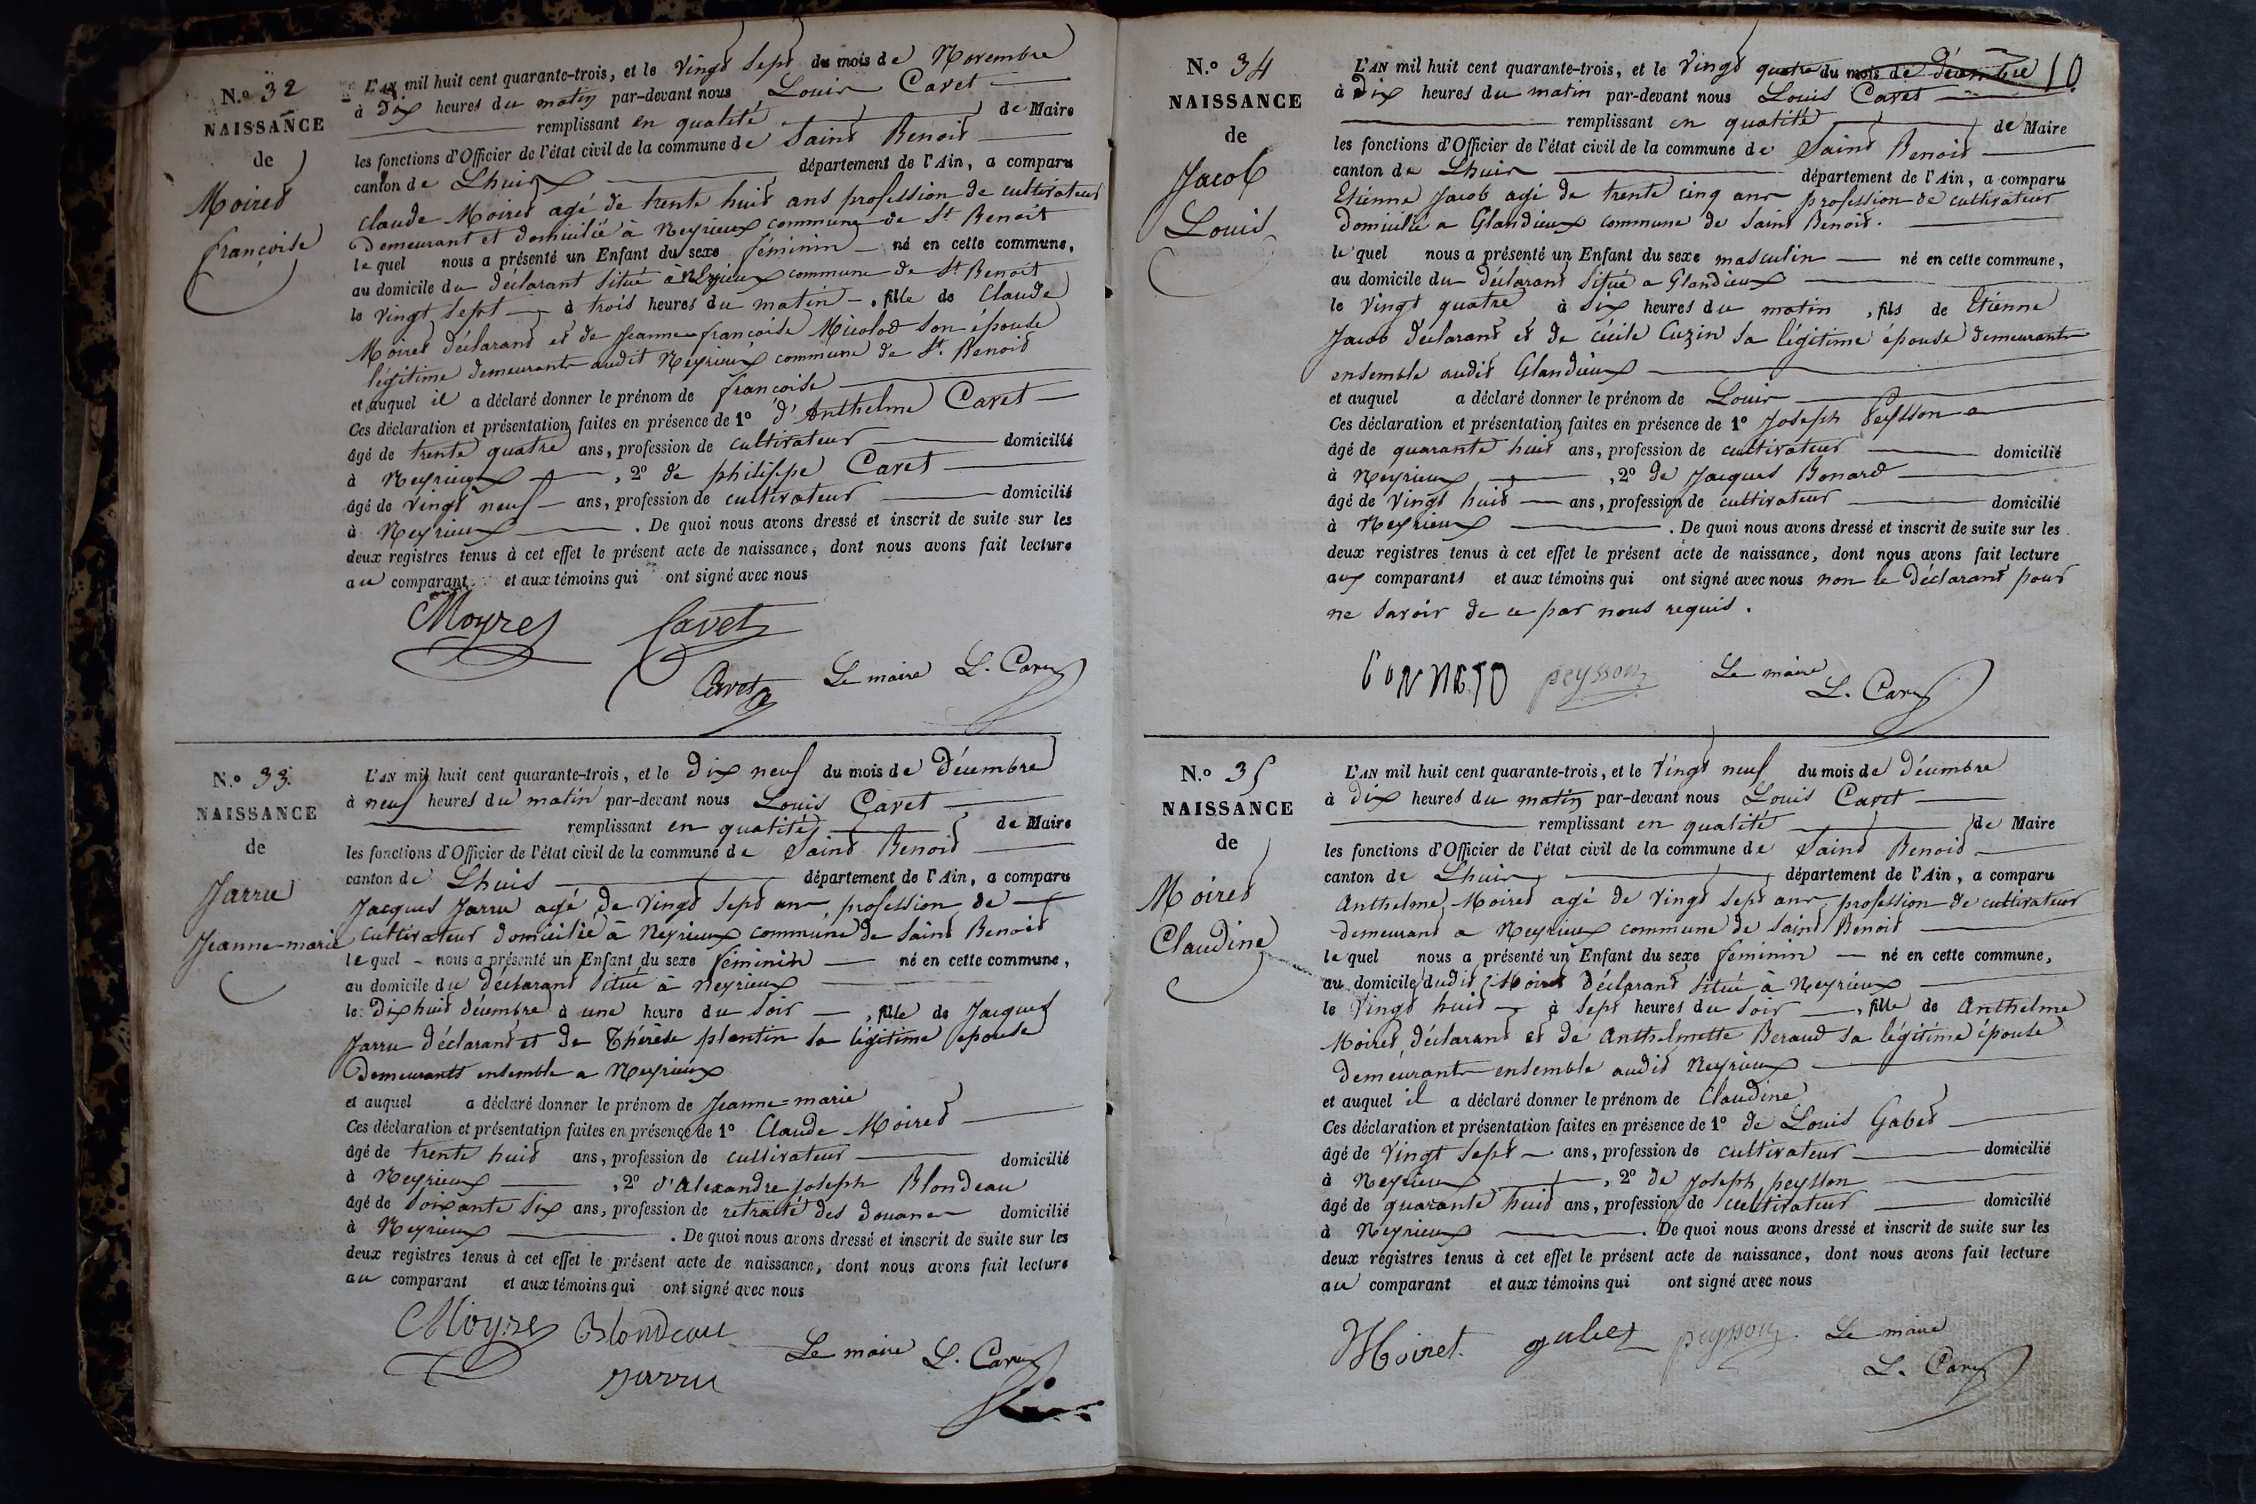 N.o 32
NAISSANCE
de
Moiret
françoise
L'AN mil huit cent quarante-trois, et le Vingt Sept du mois de Novembre
à Dix heures du matin par-devant nous Louis Cavet
remplissant en qualité de Maire
les fonctions d'Officier de l'état civil de la commune de Saint Benoit
canton de Lhuis département de l'Ain, a comparu
Claude Moiret agé de trente huit ans profession de cultivateur
Demeurant et domicilié à Neyrieux commune de St Benoit
le quel nous a présenté un Enfant du sexe féminin né en cette commune,
au domicile du déclarant situé à Neyrieux commune de St Benoit
le Vingt Sept à trois heures du matin, fille de Claude
Moiret déclarant et de Jeanne françoise Micolod son épouse
légitime demeurants audit Neyrieux commune de St. Benoit
et auquel il a déclaré donner le prénom de françoise
Ces déclaration et présentation faites en présence de 1o d'Anthelme Cavet
âgé de trente quatre ans, profession de cultivateur domicilié
à Neyrieux, 2o de philippe Cavet
âgé de Vingt neuf ans, profession de cultivateur domicilié
à Neyrieux. De quoi nous avons dressé et inscrit de suite sur les
deux registres tenus à cet effet le présent acte de naissance, dont nous avons fait lecture
au comparant et aux témoins qui ont signé avec nous
Moyret Cavet
Cavet Le maire L. Cavet
N.o 33
NAISSANCE
de
Jarru
Jeanne-marie
L'AN mil huit cent quarante-trois, et le Dix neuf du mois de Décembre
à neuf heures du matin par-devant nous Louis Cavet
remplissant en qualité de Maire
les fonctions d'Officier de l'état civil de la commune de Saint Benoit
canton de Lhuis département de l'Ain, a comparu
Jacques Jarru agé de Vingt Sept ans profession de
cultivateur domicilié à Neyrieux commune de Saint Benoit
le quel nous a présenté un Enfant du sexe féminin né en cette commune,
au domicile du déclarant situé à Neyrieux
le Dix huit décembre à une heure du Soir, fille de Jacques
Jarru déclarant et de Thérèse plantin sa légitime épouse
Demeurants ensemble a Neyrieux
et auquel a déclaré donner le prénom de Jeanne=marie
Ces déclaration et présentation faites en présence de 1o Claude Moiret
âgé de trente huit ans, profession de cultivateur domicilié
à Neyrieux, 2o d'Alexandre joseph Blondeau
âgé de Soixante Six ans, profession de retraité des douanes domicilié
à Neyrieux. De quoi nous avons dressé et inscrit de suite sur les
deux registres tenus à cet effet le présent acte de naissance, dont nous avons fait lecture
au comparant et aux témoins qui ont signé avec nous
Moyret Blondeau
Jarru Le maire L. Cavet
N.o 34
NAISSANCE
de
Jacob
Louis
10
L'AN mil huit cent quarante-trois, et le Vingt quatre du mois de décembre
à Dix heures du matin par-devant nous Louis Cavet
remplissant en qualité de Maire
les fonctions d'Officier de l'état civil de la commune de Saint Benoit
canton de Lhuis département de l'Ain, a comparu
Etienne Jacob agé de trente cinq ans profession de cultivateur
domicilié a Glandieux commune de Saint Benoit.
le quel nous a présenté un Enfant du sexe masculin né en cette commune,
au domicile du déclarant situé a Glandieux
le Vingt quatre à Six heures du matin, fils de Etienne
Jacob déclarant et de cécile Cuzin sa légitime épouse demeurants
ensemble audit Glandieux
et auquel a déclaré donner le prénom de Louis
Ces déclaration et présentation faites en présence de 1o Joseph Peysson
âgé de quarante huit ans, profession de cultivateur domicilié
à Neyrieux, 2o de Jacques Bonard
âgé de Vingt huit ans, profession de cultivateur domicilié
à Neyrieux. De quoi nous avons dressé et inscrit de suite sur les
deux registres tenus à cet effet le présent acte de naissance, dont nous avons fait lecture
aux comparants et aux témoins qui ont signé avec nous non le Déclarant pour
ne savoir de ce par nous requis.
peysson Le maire
L. Cavet
N.o 35
NAISSANCE
de
Moiret
Claudine
L'AN mil huit cent quarante-trois, et le Vingt neuf du mois de Décembre
à Dix heures du matin par-devant nous Louis Cavet
remplissant en qualité de Maire
les fonctions d'Officier de l'état civil de la commune de Saint Benoit
canton de Lhuis département de l'Ain, a comparu
Anthelme Moiret agé de Vingt Sept ans profession de cultivateur
demeurant a Neyrieux commune de Saint Benoit
le quel nous a présenté un Enfant du sexe féminin né en cette commune,
au domicile dudit Moiret Déclarant situé à Neyrieux
le Vingt huit à Sept heures du Soir, fille de Anthelme
Moiret, déclarant et de Anthelmette Beraud sa légitime épouse
demeurants ensemble audit Neyrieux
et auquel il a déclaré donner le prénom de Claudine
Ces déclaration et présentation faites en présence de 1o de Louis Gabet
âgé de Vingt Sept ans, profession de cultivateur domicilié
à Neyrieux, 2o de Joseph peysson
âgé de quarante huit ans, profession de cultivateur domicilié
à Neyrieux. De quoi nous avons dressé et inscrit de suite sur les
deux registres tenus à cet effet le présent acte de naissance, dont nous avons fait lecture
au comparant et aux témoins qui ont signé avec nous
Moiret gabet peysson Le maire
L. Cavet